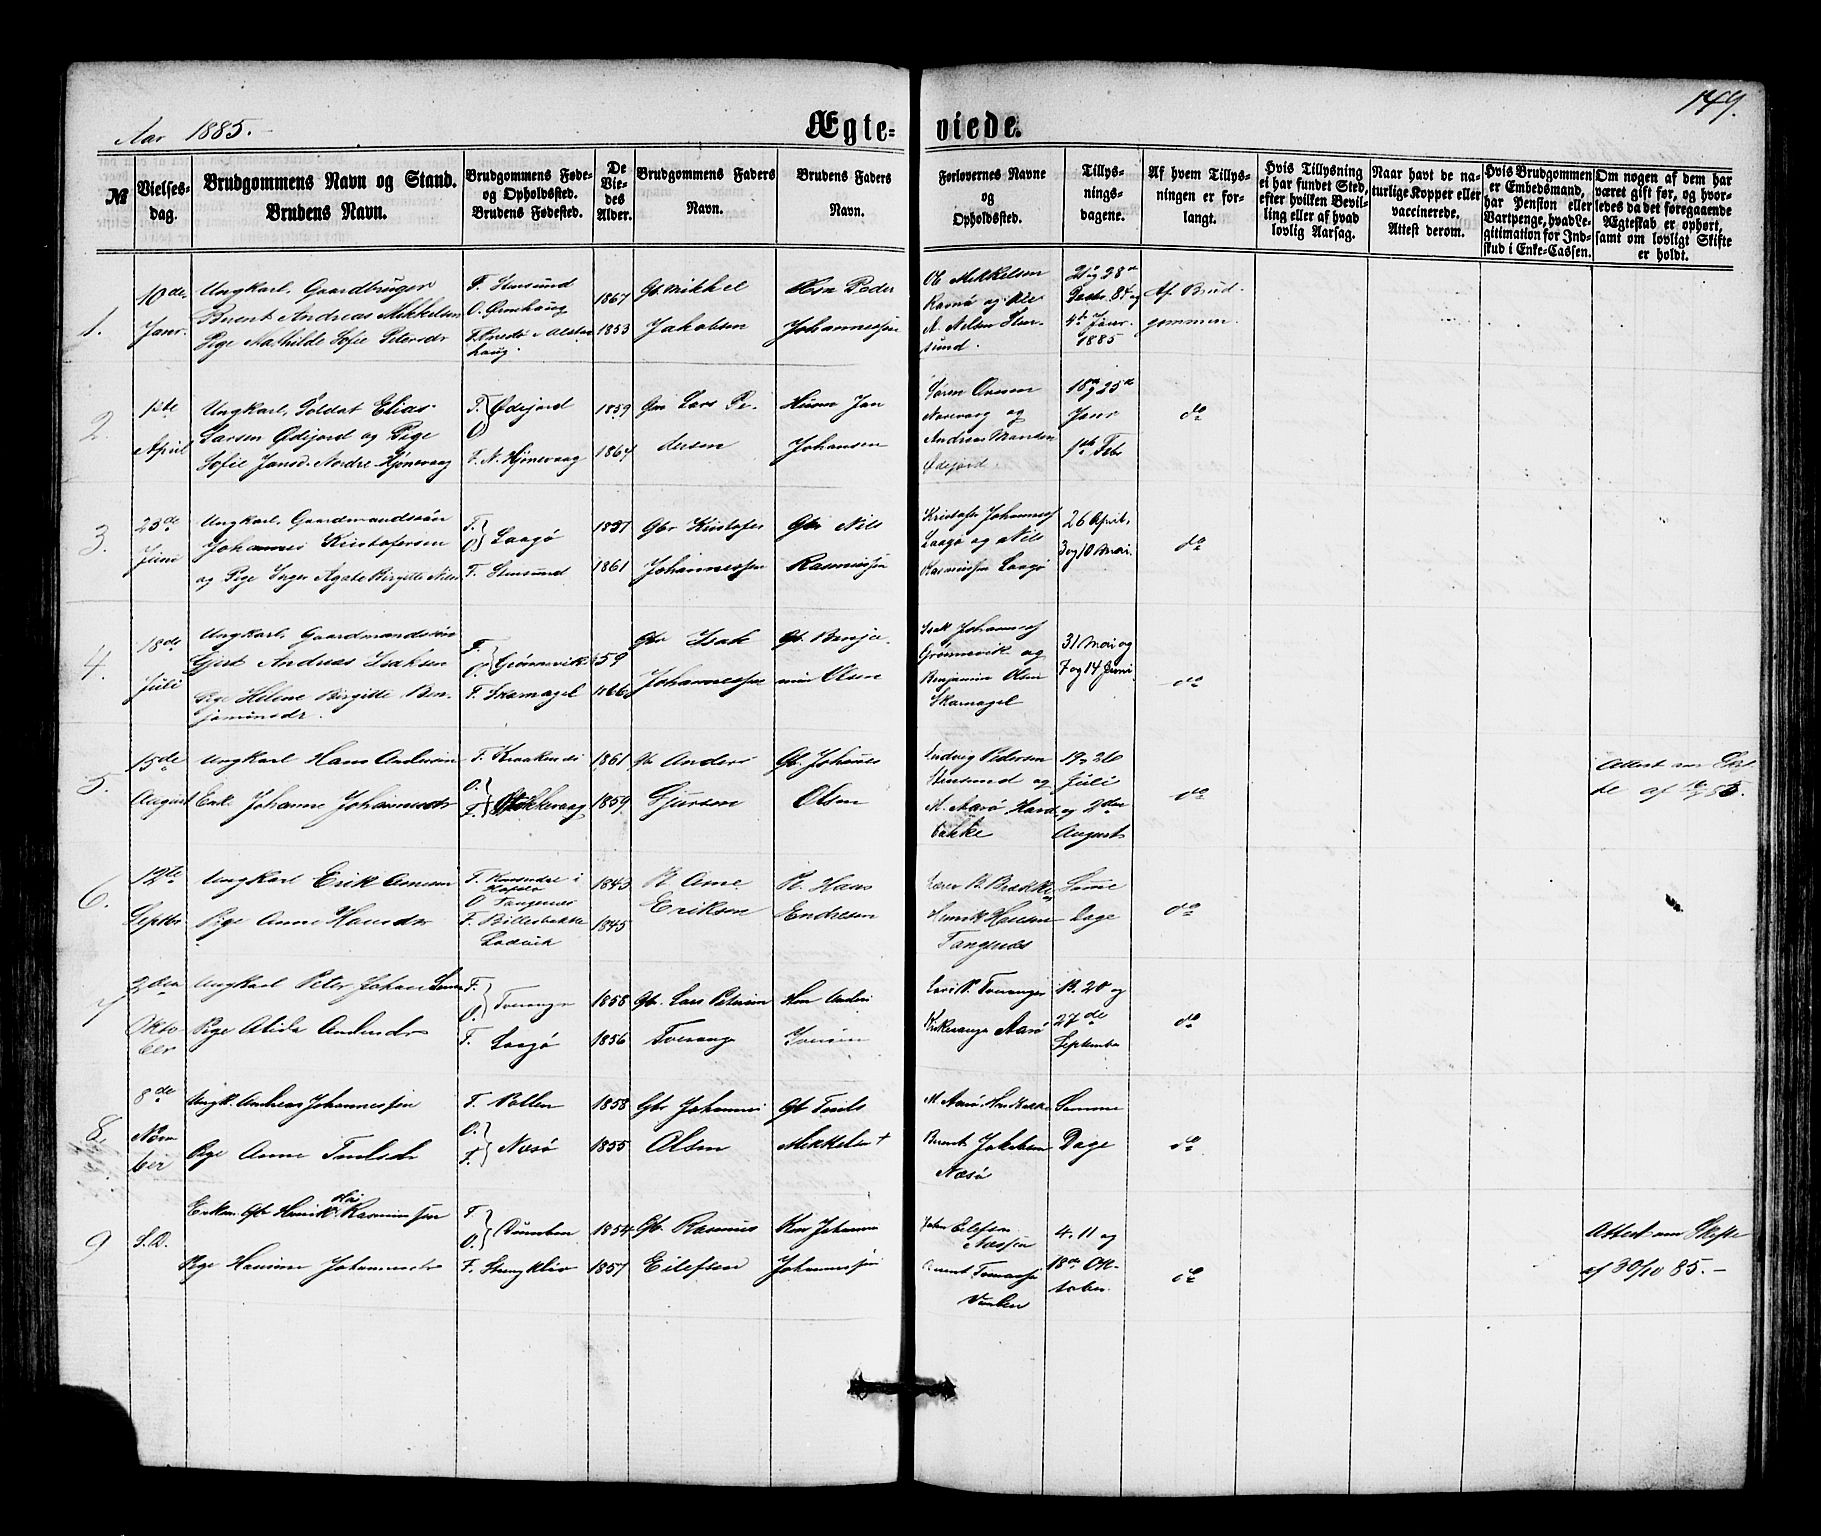 Aar 1885.
Ægte-
viede.
149.
№
Vielses-
dag.
Brudgommens Navn og Stand.
Brudens Navn.
Brudgommens Føde-
og Opholdssted.
Brudens Fødested.
De
Vie-
des
Alder.
Brudgommens Faders
Navn.
Brudens Faders
Navn.
Forlovernes Navne
og
Opholdssted.
Tillys-
nings-
dagene.
Af hvem Tillys-
ningen er for-
langt.
Hvis Tillysning
ei har fundet Sted,
efter hvilken Bevil-
ling eller af hvad
lovlig Aarsag.
Naar havt de na-
turlige Kopper eller
vaccinerede.
Attest derom.
Hvis Brudgommen
er Embedsmand,
har Pension eller
Vartpenge, hvad Le-
gitimation for Ind-
skud i Enke-Cassen.
Om nogen af dem har
været gift før, og hvor-
ledes da det foregaaende
Ægteskab er ophørt,
samt om lovligt Skifte
er holdt.
1.
10de
Janr.
Ungkarl, Gaardbruger
Berent Andreas Mikkelsen
Pige Mathilde Sofie Petersdr
F. Stensund
O.
F.
haug.
1867
1853
Gb. Mikkel
Jakobsen
Peder
Johannessen
Ol. Mikkelsen
og Ole
A. Nilsen Sten-
sund.
21 og 28de
Decbr. 84 og
4de Janr.
1885
Af Brud-
gommen.
2.
1ste
April
Ungkarl, Soldat Elias
Larsen Ødejord og Pige
Sofie Jansd. Nordre Hjønevaag
F.
O.
Ødejord
F. N. Hjønevaag
1859
1864
Lars Pe-
dersen
Husm Jan
Johansen
Søren
og
Andreas Monsen
Ødejord
18 og 25de
Janr
1ste Febr
do
3.
25de
Juni
Ungkarl, Gaardmandssøn
Johannes Kristofersen
og Pige Inger Agate Birgitte Nilsd
F.
O.
Laagø
F. Stensund
1857
1861
Gbr Kristofer
Johannessen
Gbr Nils
Rasmussen
Kristofer Johannes
Laagø og Nils
Rasmussen Laagø
26 April,
3 og 10 Mai.
do
4.
18de
Juli
Ungkarl, Gaardmandssøn
Gjert Andreas Isaksen
Pige Helene Birgitte Ben-
jaminsdr.
F.
O.
Grønnevik
F. Skarnagel
59
1866
Gbr Isak
Johannessen
Gb. Benja-
min Olsen
Isak Johannes
Grønnevik og
Benjamin Olsen
Skarnagel
31 Mai og
7 og 14 Juni
do
5.
15de
August
Ungkarl Hans Andersen
Enke Johanne Johannesdr
F. Kraakenes
O.
F.
1861
1859
Anders
Sjursen
Gb. Johannes
Olsen
Ludvig Pedersen
Stensund og
M. Aarø Hard-
bakke
19 26
Juli
og 2den
August
do
Attest om Skif-
te af
6.
12te
Septbr
Ungkarl Erik Arnesen
Pige Anne Hansdr
F. i
O. Tangenes
F.
1843
1845
Arne
Eriksen
Hans
Endresen
Henrik Hansen
Tangenæs
Samme
Dage
do
7
2den
Okto
ber
Ungkarl Peter Johan Larsen
Pige Alida Andersdr
F.
O.
Tveranger
F. Laagø
1858
1856
Gb. Lars Petersen
Tverange
Anders
Iversen
Lars P. Tveranger
Aarø
13. 20 og
27de
September
do
8.
8de
Novm
ber
Ungk. Andreas Johannessen
Pige Anne
F. Pollen
O.
F.
Næsø
1858
1855
Gbr Johannes
Olsen
Gb
Mikkelsen +
M. Aarø, Hardbakke
Berent Jakobsen
Næsø
Samme
Dage
do
9
S.D.
Enkem. Gb Henrik Rasmussen
Pige Johannesdr
F.
O.
F.
1854
1857
Gb. Rasmus
Eilefsen
Johannes
Johannessen
Eilefsen
4. 11 og
18de Ok-
tober.
do
Attest om Skifte
af 30/10 85.-